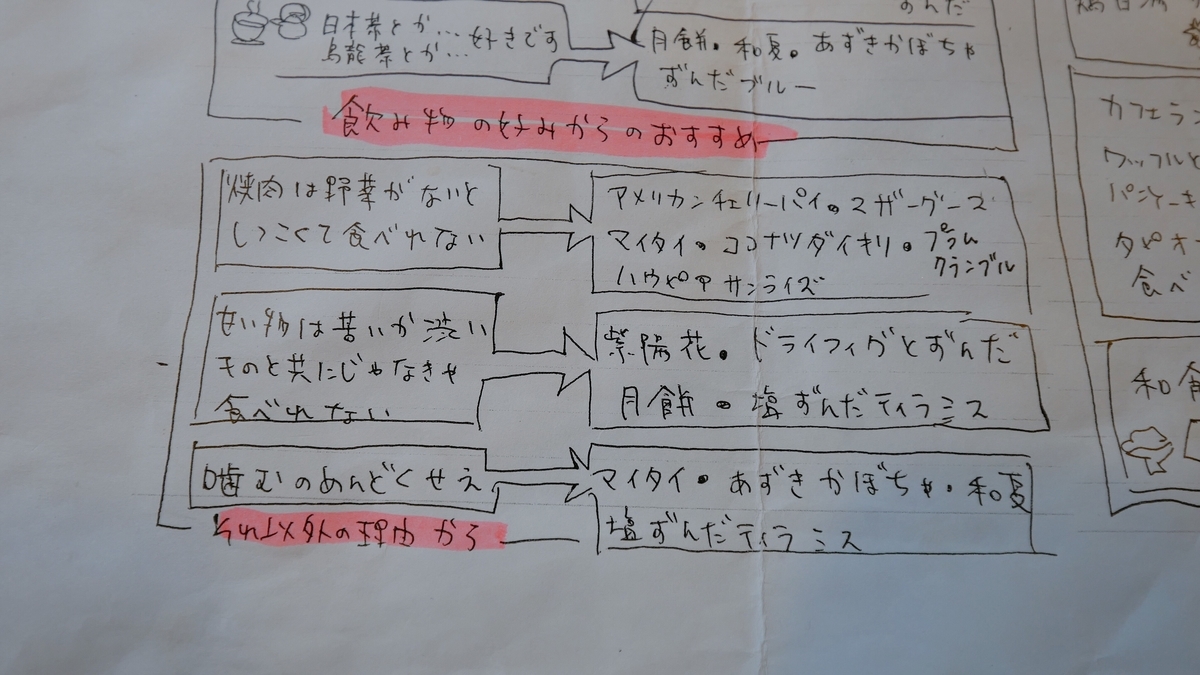 ずんだ
日本茶とか…好きです
烏龍茶とか…
月餅。和夏。あずきかぼちゃ
ずんだブルー
飲み物の好みからのおすすめ
焼肉は野菜がないと
しつこくて食べれない
アメリカンチェリーパイ。スザーグース
マイタイ・ココナツダイキリ・プラム
クランブル
ハウピアサンライズ
甘い物は苦いか渋い
ものと共にじゃなきゃ
食べれない
紫陽花。ドライフィグとずんだ
月餅・塩ずんだティラミス
噛むのめんどくせえ
マイタイ・あずきかぼちゃ・和夏
塩ずんだティラミス
それ以外の理由から
カフェラン
ワッフルと
パンケーキ
タピオ
食べ
和食